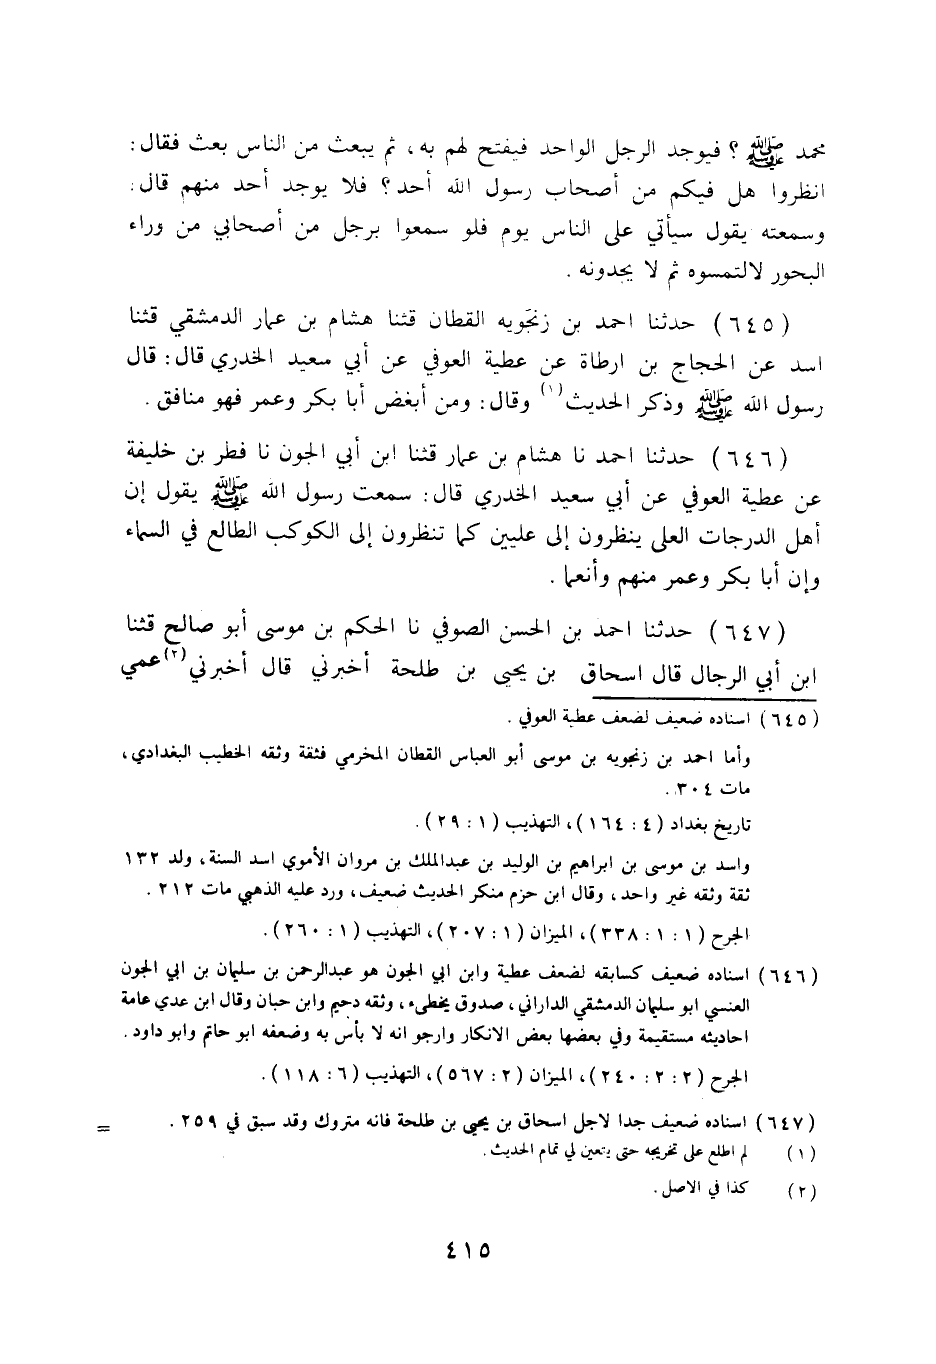 محمد ﷺ ؟ فيوجد الرجل الواحد فيفتح لهم به، ثم يبعث من الناس بعث فقال:
انظروا هل فيكم من أصحاب رسول الله أحد؟ فلا يوجد أحد منهم قال:
وسمعته يقول سيأتي على الناس يوم فلو سمعوا برجل من أصحابي من وراء
البحور لالتمسوه ثم لا يجدونه .
(٦٤٥) حدثنا احمد بن زنجويه القطان قثنا هشام بن عمار الدمشقي قثنا
اسد عن الحجاج بن ارطاة عن عطية العوفي عن أبي سعيد الخدري قال: قال
رسول الله ﷺ وذكر الحديث(١) وقال: ومن أبغض أبا بكر وعمر فهو منافق .
(٦٤٦) حدثنا احمد نا هشام بن عمار قثنا ابن أبي الجون نا فطر بن خليفة
عن عطية العوفي عن أبي سعيد الخدري قال: سمعت رسول الله ﷺ يقول إن
أهل الدرجات العلى ينظرون إلى عليين كما تنظرون إلى الكوكب الطالع في السماء
وإن أبا بكر وعمر منهم وأنعما .
(٦٤٧) حدثنا احمد بن الحسن الصوفي نا الحكم بن موسى أبو صالح قثنا
ابن أبي الرجال قال اسحاق بن يحيى بن طلحة أخبرني قال أخبرني(٢) عمي
(٦٤٥) اسناده ضعيف لضعف عطية العوفي .
وأما احمد بن زنجويه بن موسى أبو العباس القطان المخرمي فثقة وثقه الخطيب البغدادي،
مات ٣٠٤ .
تاريخ بغداد (٤: ١٦٤)، التهذيب (١: ٢٩) .
واسد بن موسى بن ابراهيم بن الوليد بن عبدالملك بن مروان الأموي اسد السنة، ولد ١٣٢
ثقة وثقه غير واحد، وقال ابن حزم منكر الحديث ضعيف، ورد عليه الذهبي مات ٢١٢ .
الجرح (١: ١: ٣٣٨)، الميزان (١: ٢٠٧)، التهذيب (١: ٢٦٠) .
(٦٤٦) اسناده ضعيف كسابقه لضعف عطية وابن ابي الجون هو عبدالرحمن بن سليمان بن ابي الجون
العنسي ابو سليمان الدمشقي الداراني، صدوق يخطىء، وثقه دحيم وابن حبان وقال ابن عدي عامة
احاديثه مستقيمة وفي بعضها بعض الانكار وارجو انه لا بأس به وضعفه ابو حاتم وابو داود .
الجرح (٢: ٢: ٢٤٠)، الميزان (٢: ٥٦٧)، التهذيب (٦: ١١٨) .
(٦٤٧) اسناده ضعيف جدا لاجل اسحاق بن يحيى بن طلحة فانه متروك وقد سبق في ٢٥٩ . =
(١) لم اطلع على تخريجه حتى يتعين لي تمام الحديث .
(٢) كذا في الاصل .
٤١٥